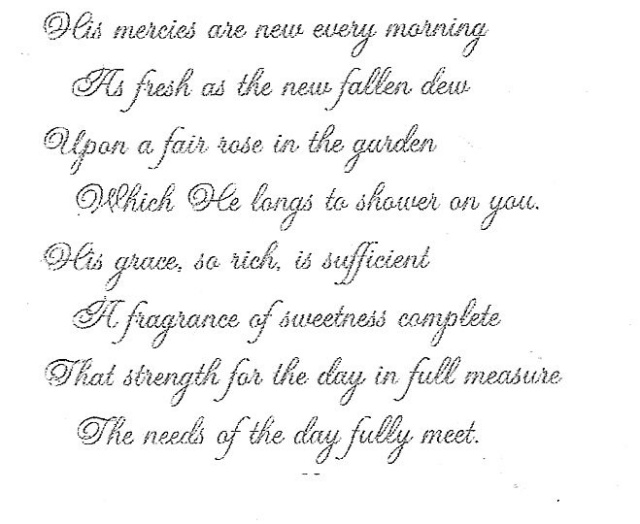 His mercies are new every morning
As fresh as the new fallen dew
Upon a fair rose in the garden
Which He longs to shower on you.
His grace, so rich, is sufficient
A fragrance of sweetness complete
That strength for the day in full measure
The needs of the day fully meet.